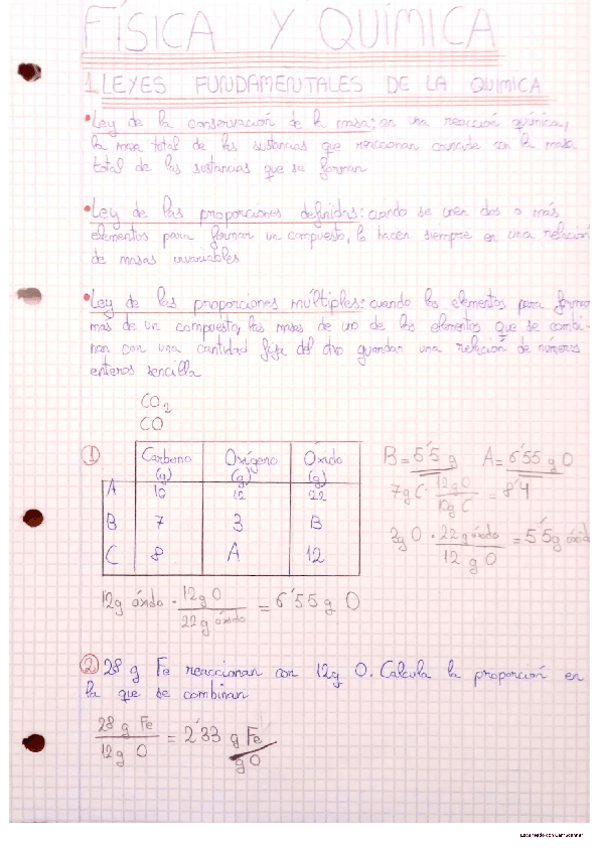 FÍSICA Y QUÍMICA
1. LEYES FUNDAMENTALES DE LA QUÍMICA
• Ley de la conservación de la masa: en una reacción química,
la masa total de las sustancias que reaccionan coincide con la masa
total de las sustancias que se forman
• Ley de las proporciones definidas: cuando se unen dos o más
elementos para formar un compuesto, lo hacen siempre en una relación
de masas invariables
• Ley de las proporciones múltiples: cuando los elementos para formar
más de un compuesto, las masas de uno de los elementos que se combi-
nan con una cantidad fija del otro guardan una relación de números
enteros sencilla
CO2
CO
① Carbono (g) Oxígeno (g) Óxido (g)
A 10 12 22
B 7 3 B
C 8 A 12
B = 5'5 g A = 6'55 g O
7g C · 12g O / 10g C = 8'4
3g O · 22g óxido / 12 g O = 5'5g óxido
12g óxido · 12g O / 22g óxido = 6'55 g O
② 28 g Fe reaccionan con 12g O. Calcula la proporción en
la que se combinan
28 g Fe / 12g O = 2'33 g Fe / g O
Escaneado con CamScanner